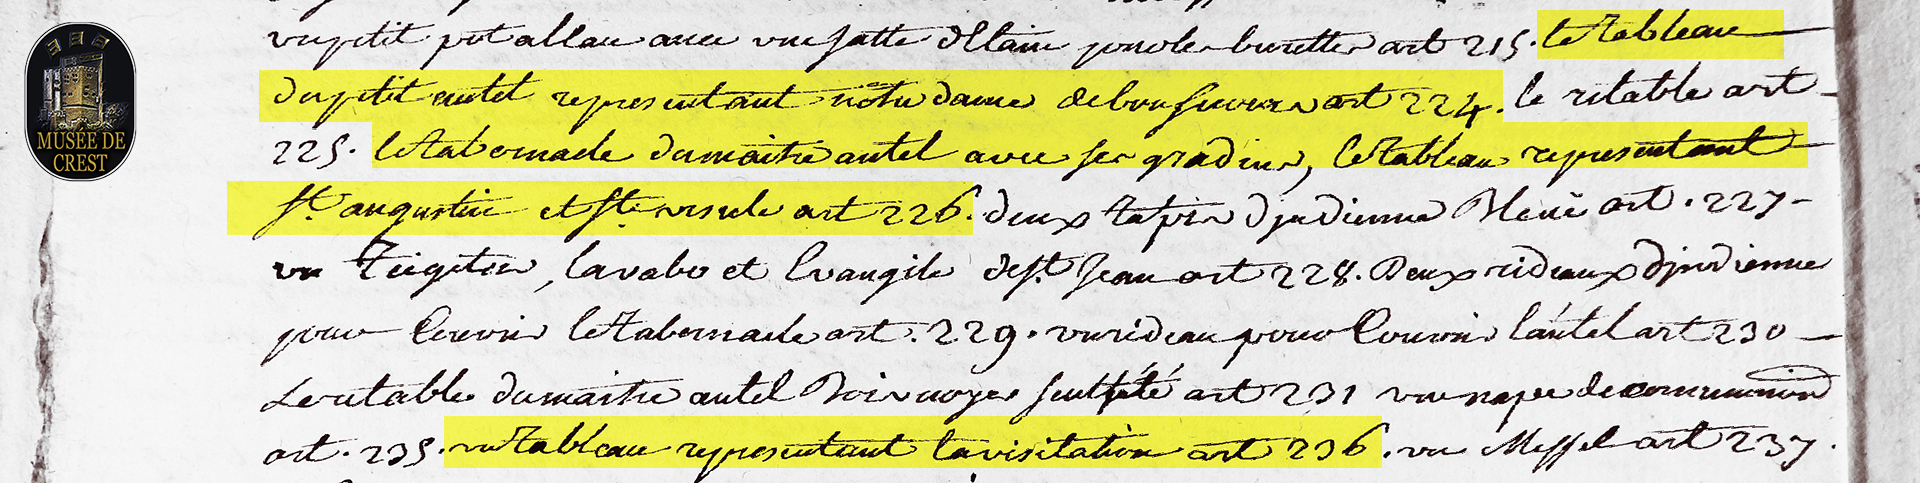 MUSÉE DE
CREST
un petit pot a l'eau avec une jatte d'étain pour les burettes art 215. le tableau
du petit autel representant notre dame de bon secours art 224. le retable art
225. le tabernacle du maitre autel avec ses gradins, le tableau representant
St. augustin et Ste. ursule art 226. deux tapis d'jndienne Bleüe art. 227
un Te igitur, lavabo et Evangile de St. Jean art 228. Deux rideaux d'jndienne
pour Couvrir le tabernacle art. 229. un rideau pour Couvrir l'autel art 230
Le retable du maitre autel Bois noyer sculpté art 231 une nape de communion
art. 235. un tableau representant la visitation art 236. un Messel art 237.